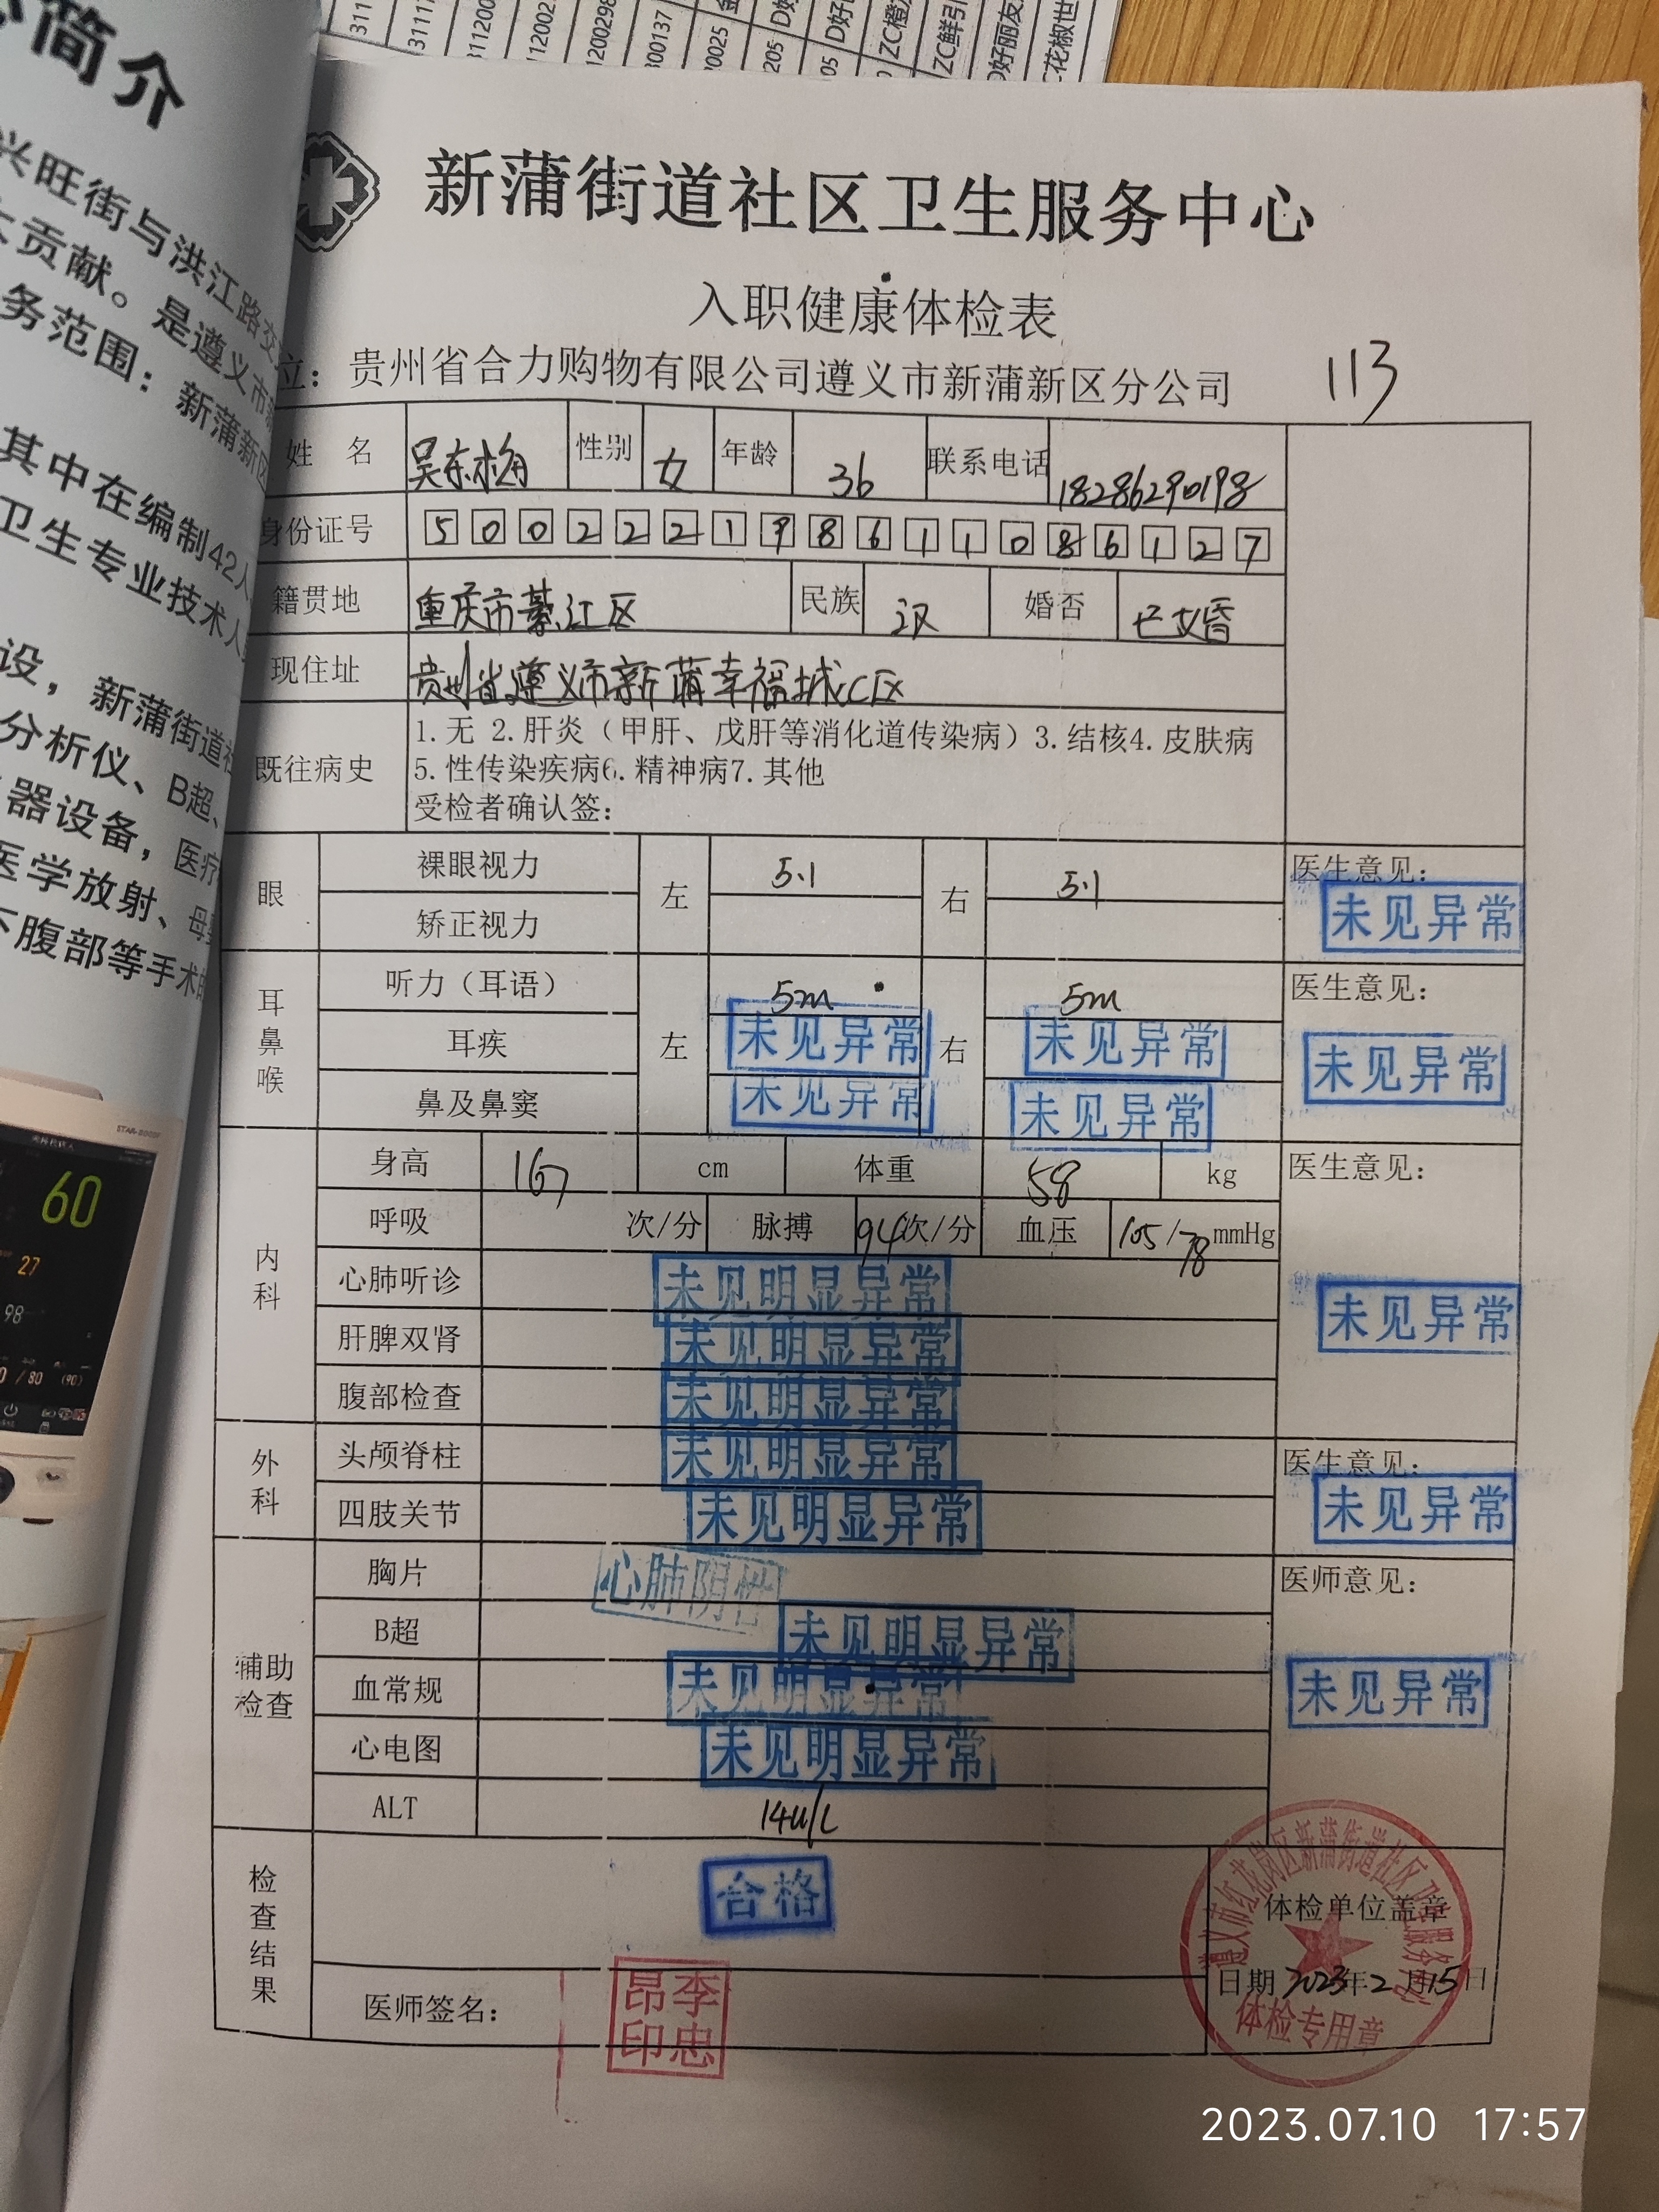 简介
兴旺街与洪江路交
大贡献。是遵义市
务范围：新蒲新区
其中在编制42人
卫生专业技术人
设，新蒲街道社
分析仪、B超、
器设备，医疗
医学放射、母婴
下腹部等手术
60
27
98
新蒲街道社区卫生服务中心
入职健康体检表
位：贵州省合力购物有限公司遵义市新蒲新区分公司
113
姓 名 吴东梅 性别 女 年龄 36 联系电话 18286290198
身份证号 500222198611086127
籍贯地 重庆市綦江区 民族 汉 婚否 已婚
现住址 贵州省遵义市新蒲幸福城C区
既往病史 1.无 2.肝炎（甲肝、戊肝等消化道传染病）3.结核4.皮肤病
5.性传染疾病6.精神病7.其他
受检者确认签：
眼 裸眼视力 左 5.1 右 5.1 医生意见：
矫正视力 未见异常
耳鼻喉 听力（耳语） 左 5m 右 5m 医生意见：
耳疾 未见异常 未见异常 未见异常
鼻及鼻窦 未见异常 未见异常
内科 身高 167 cm 体重 58 kg 医生意见：
呼吸 次/分 脉搏 94次/分 血压 105/78 mmHg
心肺听诊 未见明显异常 未见异常
肝脾双肾 未见明显异常
腹部检查 未见明显异常
外科 头颅脊柱 未见明显异常 医生意见：
四肢关节 未见明显异常 未见异常
辅助检查 胸片 心肺阴性 医师意见：
B超 未见明显异常
血常规 未见明显异常 未见异常
心电图 未见明显异常
ALT 14u/L
检查结果 合格 体检单位盖章
遵义市红花岗区新蒲街道社区卫生服务中心
日期 2023年2月15日
体检专用章
医师签名： 李忠昂印
2023.07.10 17:57